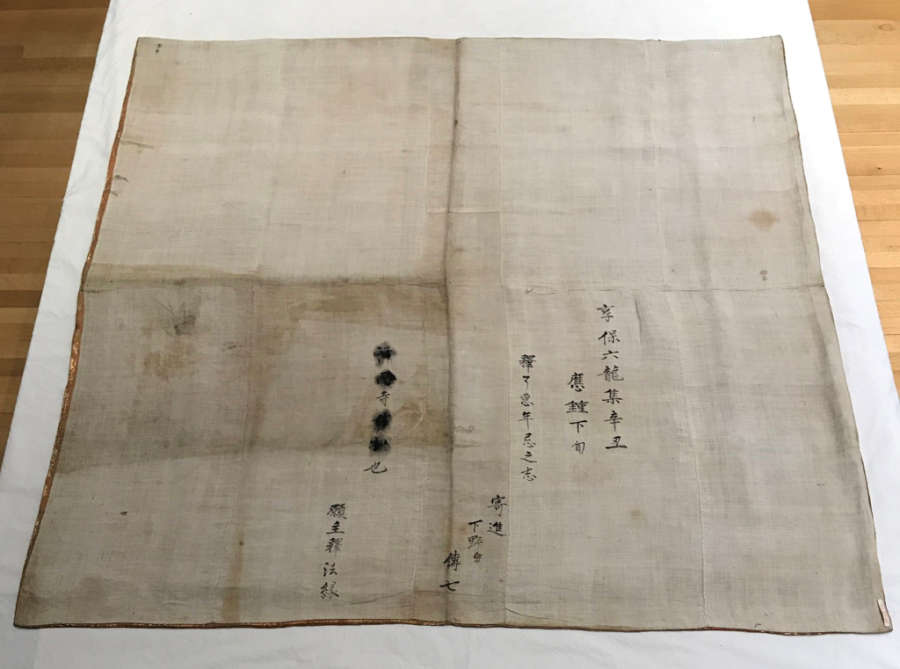 享保六龍集辛丑
應鐘下旬
釋了恵年忌之志
寄進
下野台
傳七
寺
也
願主釋法縁